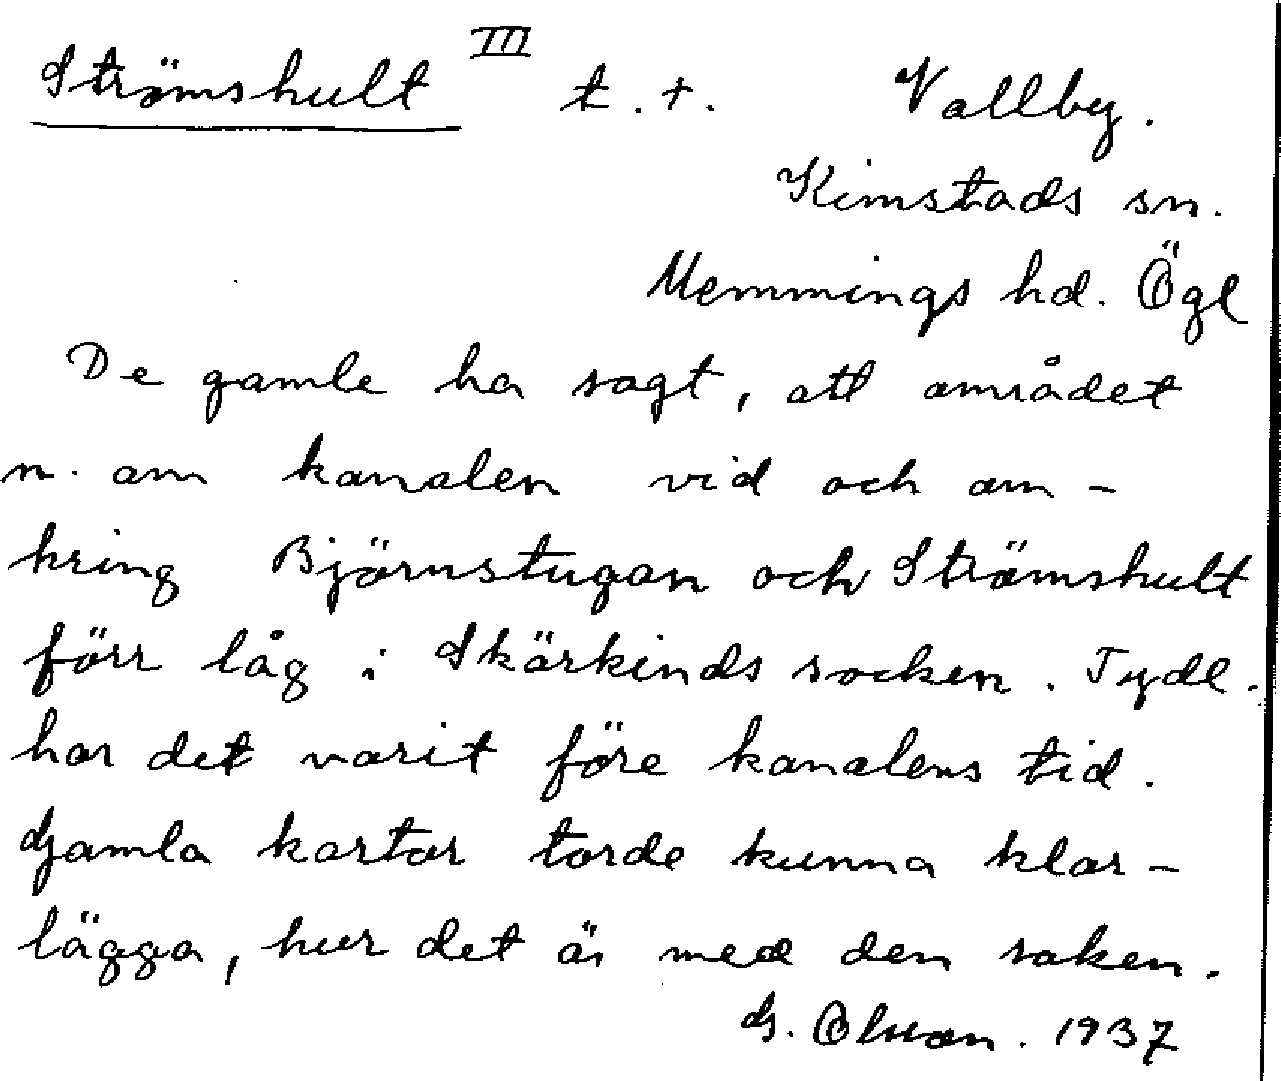 Strömshult III t. t. Vallby.
Kimstads sn.
Memmings hd. Ögl
De gamle ha sagt, att området
n. om kanalen vid och om-
kring Björnstugan och Strömshult
förr låg i Skärkinds socken. Tydl.
har det varit före kanalens tid.
Gamla kartor torde kunna klar-
lägga, hur det är med den saken.
G. Olson. 1937